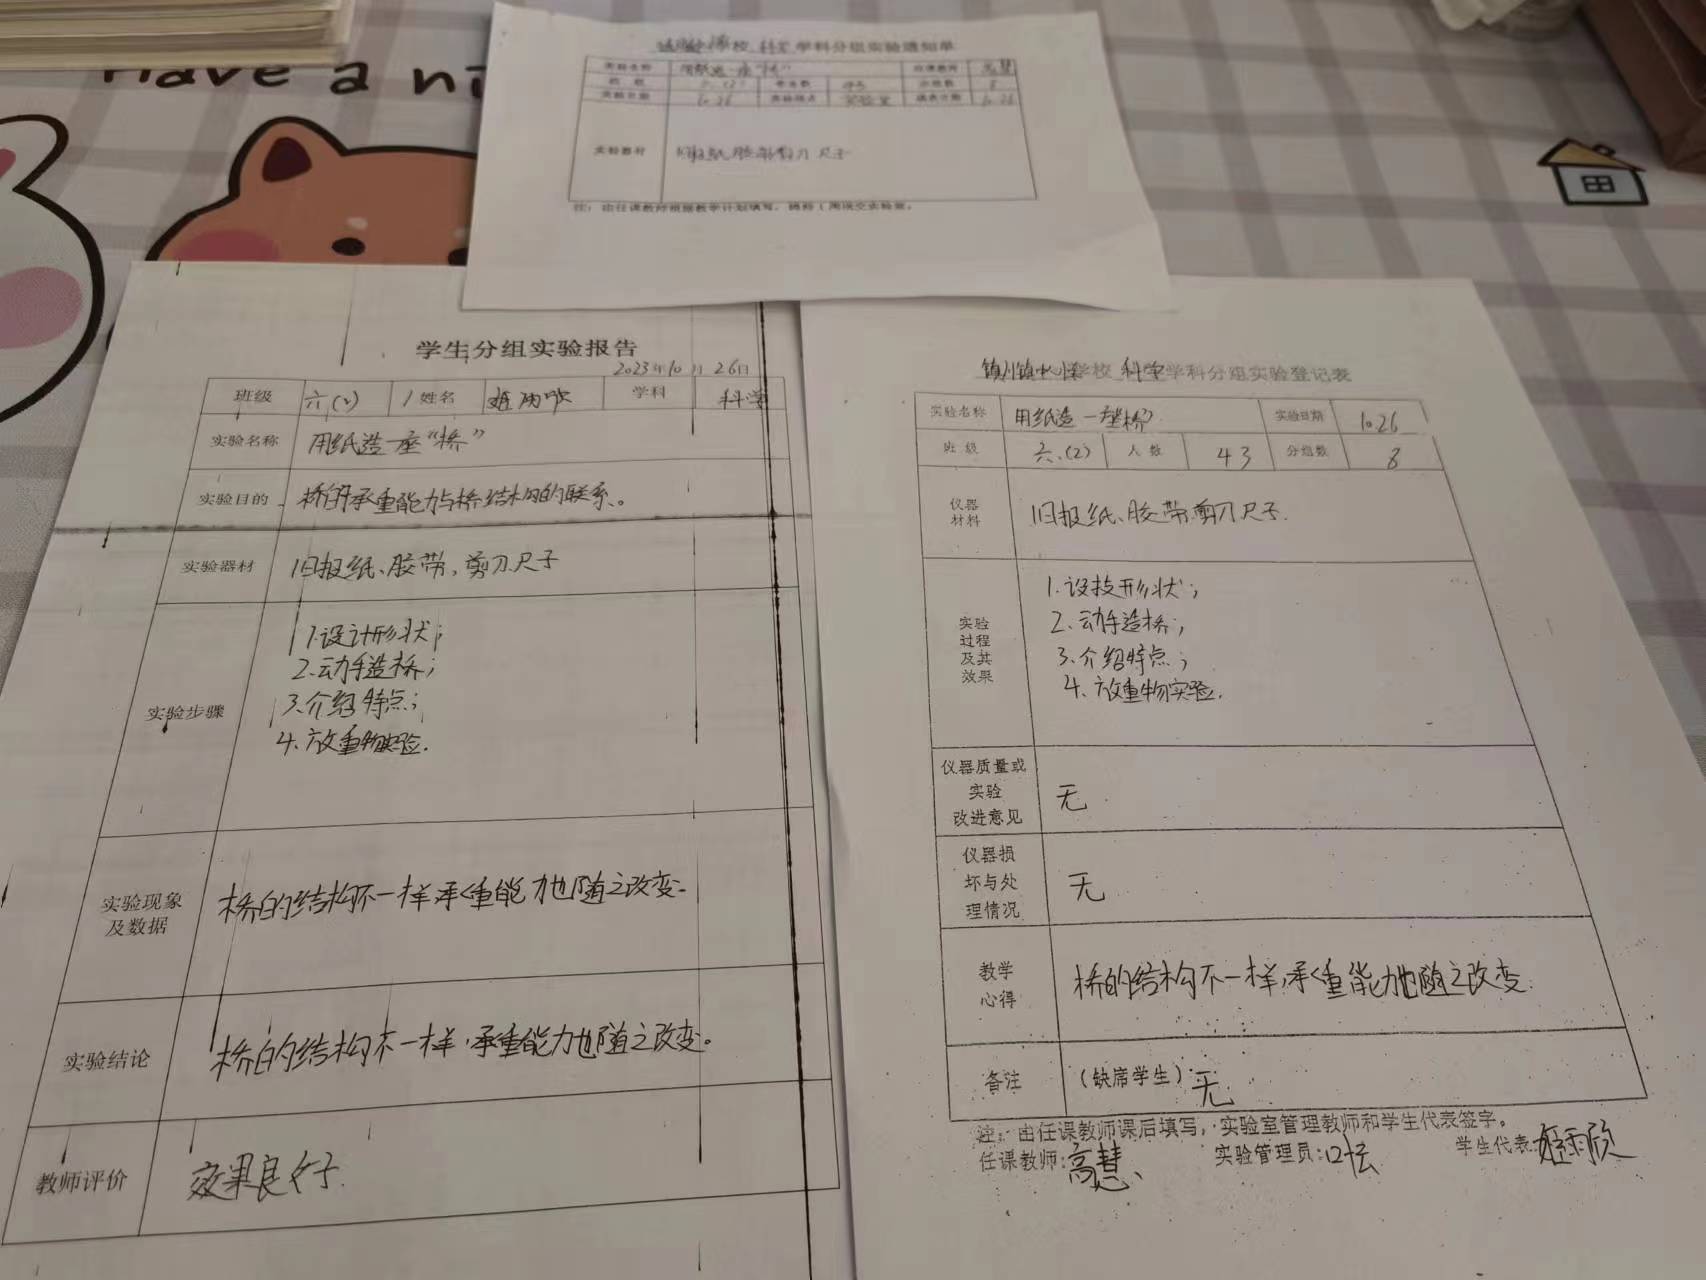 Have a ni
学科分组实验通知单
实验名称 用纸造一座“桥” 任课教师 高慧
班级 六(2) 学生数 43 分组数 8
实验日期 10.26 实验地点 实验室 填表日期 10.26
实验器材 旧报纸、胶带剪刀 尺子
注：由任课教师根据教学计划填写，提前1周送交实验室。
学生分组实验报告
2023年10月26日
班级 六(2) 姓名 学科 科学
实验名称 用纸造一座“桥”
实验目的 桥的承重能力与桥结构的联系。
实验器材 旧报纸、胶带,剪刀.尺子
实验步骤
1.设计形状;
2.动手造桥;
3.介绍特点;
4.放重物实验.
实验现象
及数据
桥的结构不一样,承重能力也随之改变.
实验结论 桥的结构不一样,承重能力也随之改变。
教师评价 效果良好.
学校 科学学科分组实验登记表
实验名称 用纸造一座“桥” 实验日期 10.26
班级 六.(2) 人数 43 分组数 8
仪器
材料
旧报纸、胶带.剪刀尺子.
实验
过程
及其
效果
1.设技形状;
2.动手造桥;
3.介绍特点;
4.放重物实验.
仪器质量或
实验
改进意见
无
仪器损
坏与处
理情况
无
教学
心得
桥的结构不一样,承重能力也随之改变.
备注 (缺席学生): 无
注：由任课教师课后填写，实验室管理教师和学生代表签字。
任课教师:高慧 实验管理员: 学生代表:姬雨欣